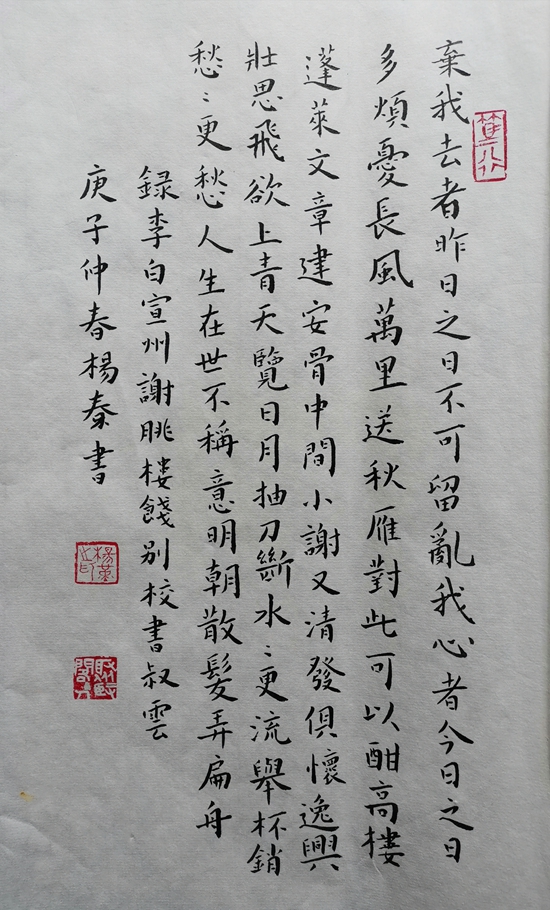 棄我去者昨日之日不可留亂我心者今日之日
多煩憂長風萬里送秋雁對此可以酣高樓
蓬萊文章建安骨中間小謝又清發俱懷逸興
壯思飛欲上青天覽日月抽刀斷水〻更流舉杯銷
愁〻更愁人生在世不稱意明朝散髮弄扁舟
錄李白宣州謝朓樓餞別校書叔雲
庚子仲春楊秦書